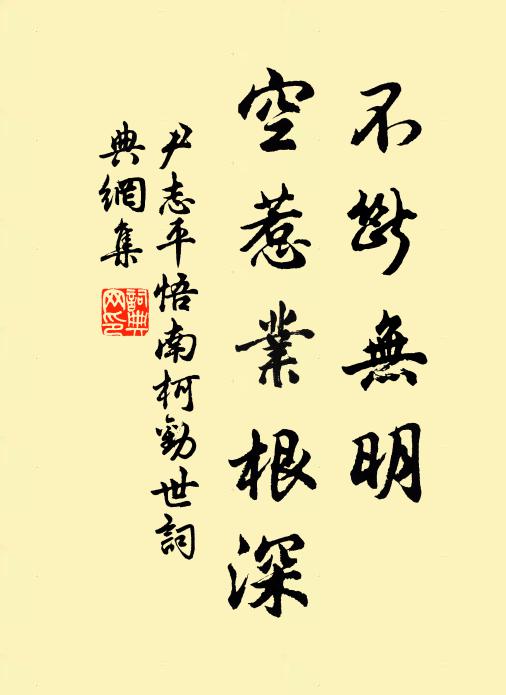 不斷無明
空惹業根深
尹志平悟南柯勸世詞
典網集
詞典網印